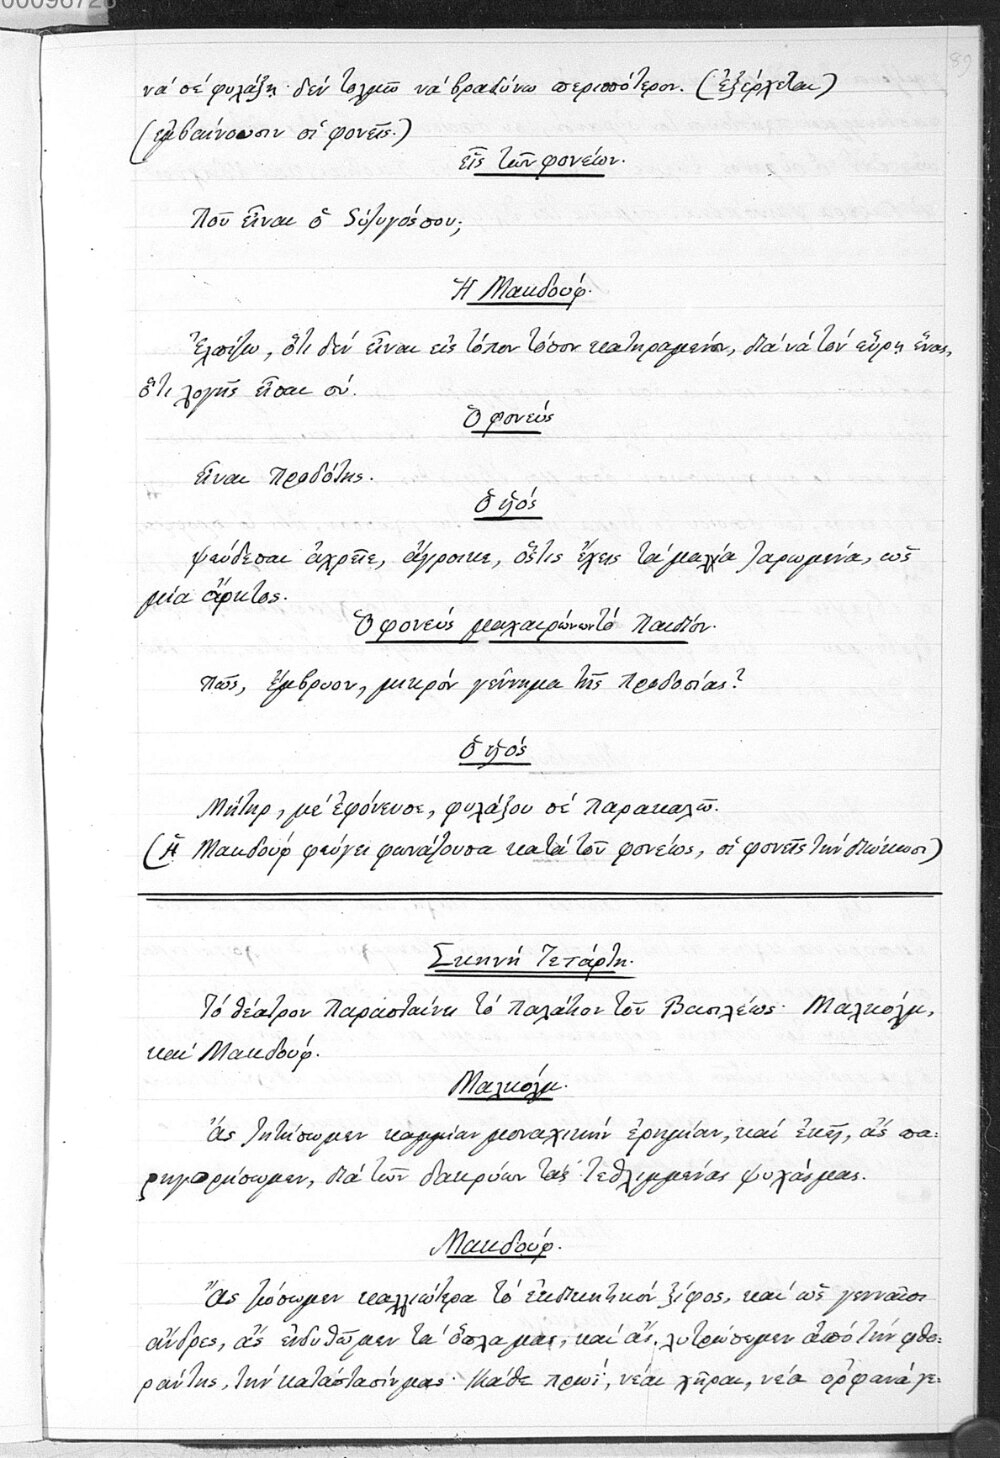 00096726
89
νά σέ φυλάξη· δέν τολμῶ νά βραδύνω περισσότερον. (ἐξέρχεται)
(ἐμβαίνουσιν οἱ φονεῖς.)
εἷς τῶν φονέων.
Ποῦ εἶναι ὁ σύζυγός σου;
Ἡ Μακδούφ.
Ἐλπίζω, ὅτι δέν εἶναι εἰς τόπον τόσον κατηραμένον, διά νά τόν εὕρῃ ἕνας,
ὅτι λογῆς εἶσαι σύ.
Ὁ φονεύς
εἶναι προδότης.
Ὁ υἱός
ψεύδεσαι ἀχρεῖε, ἄγροικε, ὅστις ἔχεις τά μαλλία ζαρωμένα, ὡς
μία ἄρκτος.
Ὁ φονεύς μαχαιρώνων τό παιδίον.
πῶς, ἔμβρυον, μικρόν γέννημα τῆς προδοσίας?
Ὁ υἱός
Μῆτερ, μέ ἐφόνευσε, φυλάξου σέ παρακαλῶ.
(Ἡ Μακδούφ φεύγει φωνάζουσα κατά τοῦ φονέως, οἱ φονεῖς τήν διώκωσι)
Σκηνή Τετάρτη.
Τό θέατρον παρασταίνει τό παλάτιον τοῦ Βασιλέως· Μαλκόλμ,
καί Μακδούφ.
Μαλκόλμ.
Ἄς ζητήσωμεν καμμίαν μοναχικήν ἐρημίαν, καί ἐκεῖ, ἄς πα:
ρηγορήσωμεν, διά τῶν δακρύων τάς τεθλιμμένας ψυχάς μας.
Μακδούφ.
Ἄς ζώσωμεν καλλιώτερα τό ἐκδικητικόν ξίφος, καί ὡς γενναῖοι
ἄνδρες, ἄς ἐνδυθῶμεν τά ὅπλα μας, καί ἄς λυτρώσωμεν ἀπό τήν φθο:
ράν της, τήν κατάστασίν μας· Κάθε πρωί, νέαι χῆραι, νέα ὀρφανά γε: